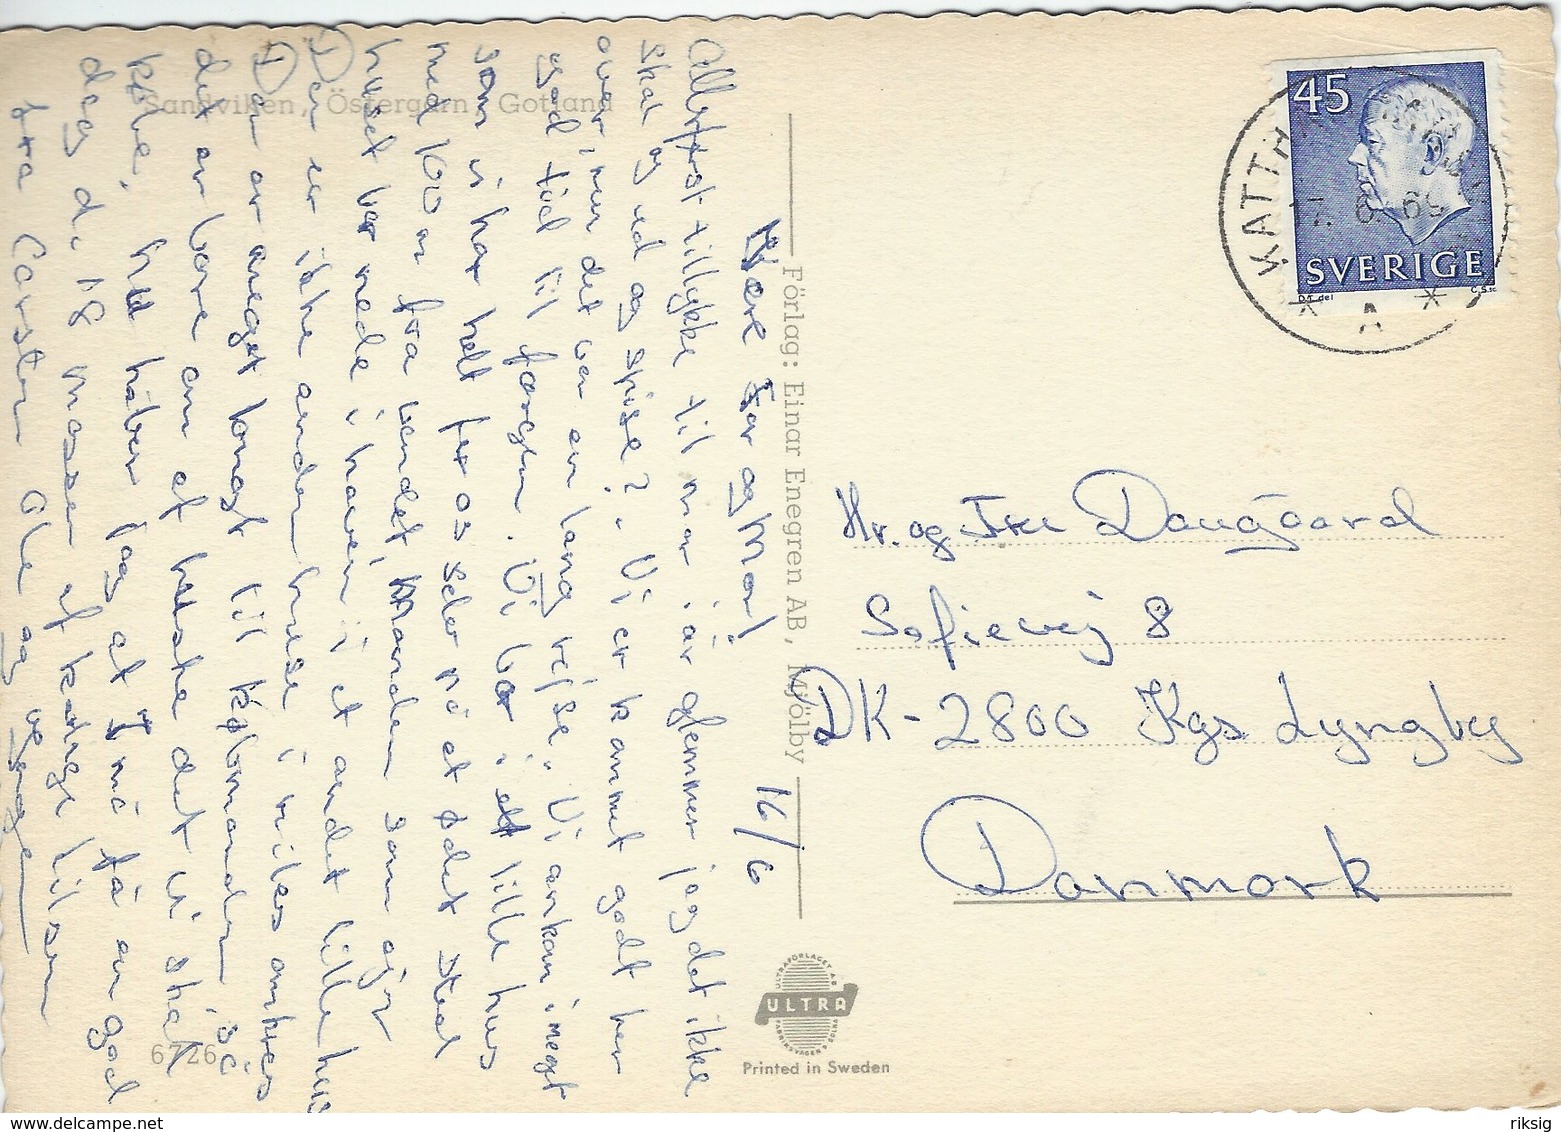 Sandviken, Östergarn, Gotland
Kære Far og Mor! 16/6
Allerførst tillykke til mor, i år glemmer jeg det ikke
skal og ud og spise? Vi er kommet godt her
over, men det var en lang rejse. Vi ankom i meget
god tid til færgen. Vi bor i et lille hus
som vi har helt for os selv på et øde sted
med 100 m fra vandet, Manden som ejer
huset bor nede i haven i et andet lille hus
Der er ikke andre huse i miles omkres
Der er meget langt til købmanden, så
det er bare om at huske det vi skal
købe, hu håber jeg at I må få en god
dag d. 18 masser af kærlige hilsner
fra Carsten Ole og
6726
Förlag: Einar Enegren AB, Mjölby
ULTRAFÖRLAGET A.B.
ULTRA
FABRIKSVÄGEN 9 SOLNA
Printed in Sweden
45
SVERIGE
D.T. del
C.S. sc
KATTH
6 69
* A *
Hr. og Fru Daugaard
Sofievej 8
DK-2800 Kgs Lyngby
Danmark
www.delcampe.net
riksig